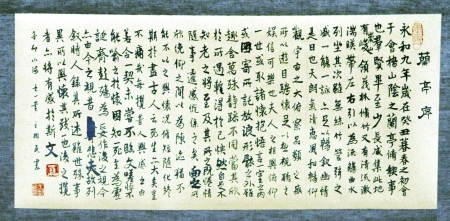 蘭亭序
永和九年歲在癸丑暮春之初會
于會稽山陰之蘭亭脩禊事
也群賢畢至少長咸集此地
有崇山峻領茂林脩竹又有清流激
湍暎帶左右引以為流觴曲水
列坐其次雖無絲竹管絃之
盛一觴一詠亦足以暢敘幽情
是日也天朗氣清惠風和暢仰
觀宇宙之大俯察品類之盛
所以遊目騁懷足以極視聽之
娛信可樂也夫人之相與俯仰
一世或取諸懷抱悟言一室之內
或因寄所託放浪形骸之外雖
趣舍萬殊靜躁不同當其欣
於所遇蹔得於己怏然自足不
知老之將至及其所之既惓情
隨事遷感慨係之矣向之所
欣俛仰之間以為陳迹猶不
能不以之興懷況脩短隨化終
期於盡古人云死生亦大矣豈
不痛哉每攬昔人興感之由
若合一契未嘗不臨文嗟悼不
能喻之於懷固知一死生為虛
誕齊彭殤為妄作後之視今
亦由今之視昔悲夫故列
敘時人錄其所述雖世殊事
異所以興懷其致一也後之攬
者亦將有感於斯文